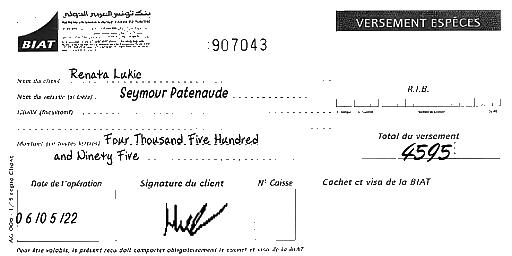 بنك تونس العربي الدولي
BIAT
907043
VERSEMENT ESPÈCES
Nom du client Renata Lukic
Nom du verseur (si tiers) Seymour Patenaude
R.I.B.
Libellé (facultatif)
Montant (en toutes lettres) Four Thousand Five Hundred
and Ninety Five
Total du versement
4595
Date de l'opération
Signature du client
N° Caisse
Cachet et visa de la BIAT
06/05/22
Pour être valable, le présent reçu doit comporter obligatoirement le cachet et visa de la BIAT